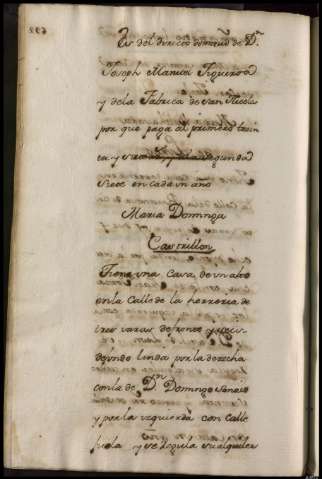 es del directo dominio de Dn.
Joseph Manuel Figueroa
y dela Fabrica de San Nicolas
por que paga al primero trein
ta y seis y ala segunda
siete en cada un año
Maria Dominga
Castrillon
Tiene una Casa de un alto
en la Calle de la herreria de
tres varas de frente y seis
de fondo linda por la derecha
con la de Dn. Domingo
y por la izquierda con Calle
y se regula su alquiler